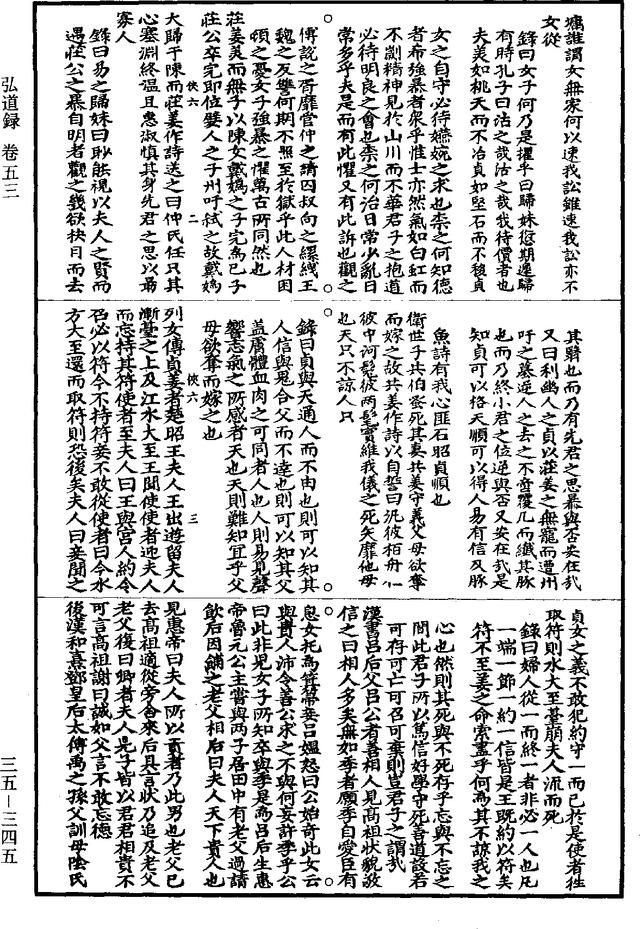 墉誰謂女無家何以速我訟雖速我訟亦不
女從
錄曰女子何乃是擢乎曰歸妹愆期遲歸
有時孔子曰沽之哉沽之哉我待價者也
夫美如桃夭而不冶貞如堅石而不移貞
女之自守必待嬿婉之求也柰之何知德
者希強暴者衆乎惟士亦然氣如白虹而
不劌精神見於山川而不華君子之抱道
必待明良之會也柰之何治日常少亂日
常多乎夫是而有此懼又有此訴也觀之
傅說之胥靡管仲之請囚叔向之縲絏王
魏之反讐何期不照至於獄乎此人材困
頓之憂女子強暴之懼萬古所同然也
莊姜美而無子以陳女戴嬀之子完為已子
莊公卒完即位嬖人之子州吁弒之故戴嬀
大歸于陳而莊姜作詩送之曰仲氏任只其
心塞淵終温且惠淑慎其身先君之思以勗
寡人
錄曰易之歸妹曰眇能視以夫人之賢而
遇莊公之暴自明者觀之幾欲抉目而去
其翳也而乃有先君之思暴與否安在哉
又曰利幽人之貞以莊姜之無寵而遭州
吁之墓逆人之去之不啻覆几而纖其豚
也而乃終小君之位逆與否又安在哉是
知貞可以格天順可以得人易有信及豚
魚詩有我心匪石昭貞順也
衛世子共伯蚤死其妻共姜守義父母欲奪
而嫁之故共姜作詩以自誓曰汎彼栢舟在
彼中河髧彼兩髦實維我儀之死矢靡他母
也天只不諒人只
錄曰貞與天通人而不由也則可以知其
人信與鬼合父而不達也則可以知其父
蓋膚體血肉之可同者人也人則易見聲
響志氣之所感者天也天則難知宜乎父
母欲奪而嫁之也
列女傳貞姜者楚昭王夫人王出遊留夫人
漸臺之上及江水大至王聞使使者迎夫人
而忘持其符使者至夫人曰王與宮人約令
召必以符今不持符妾不敢從使者曰今水
方大至還而取符則恐後矣夫人曰妾聞之
貞女之義不敢犯約守一而已於是使者徃
取符則水大至臺崩夫人流而死
錄曰婦人從一而終一者非必一人也凡
一端一節一約一信皆是王既約以符矣
符不至姜之命索盡乎何為其不諒我之
心也然則其死與不死存乎忘與不忘之
間此君子所以篤信好學守死善道設若
可存可亡可召可棄則豈君子之謂哉
漢書吕后父吕公者善相人見高祖狀貌敬
信之曰相人多矣無如季者願季自愛臣有
息女托為箕箒妾吕媼怒曰公始竒此女云
與貴人沛令善公求之不與何妄許季乎公
曰此非兒女子所知卒與季是為吕后生惠
帝魯元公主嘗與兩子居田中有老父過請
飲后因餔之老父相后曰夫人天下貴人也
見惠帝曰夫人所以貴者乃此男也老父已
去高祖適從旁舍來后具言狀乃追及老父
老父復曰鄉者夫人兒子皆以君君相貴不
可言高祖謝曰誠如父言不敢忘德
後漢和熹鄧皇后太傅禹之孫父訓母陰氏
弘道録 卷五三
三五—三四五
侠六 二
侠六 三